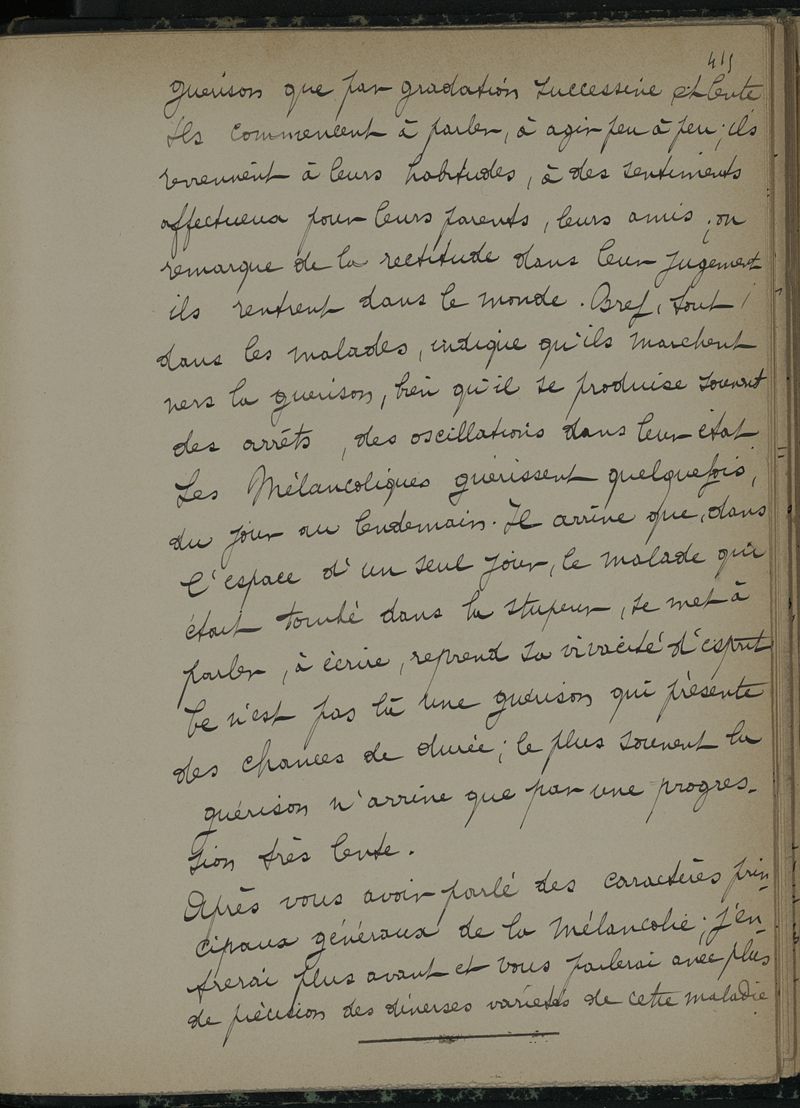 415
guerison que par gradation successive et lente
Ils commencent à parler, à agir peu à peu; ils
reviennent à leurs habitudes, à des sentiments
affectueux pour leurs parents, leurs amis; on
remarque de la rectitude dans leur jugement
ils rentrent dans le monde. Bref, tout
dans les malades, indique qu'ils marchent
vers la guerison, bien qu'il se produise souvent
des arrêts, des oscillations dans leur état
Les Mélancoliques guérissent quelquefois,
du jour au lendemain. Il arrive que, dans
l'espace d'un seul jour, le malade qui
était tombé dans la stupeur, se met à
parler, à écrire, reprend sa vivacité d'esprit
Ce n'est pas là une guerison qui présente
des chances de durée; le plus souvent la
guérison n'arrive que par une progres-
sion très lente.
Après vous avoir parlé des caractères prin-
cipaux généraux de la mélancolie; j'en-
trerai plus avant et vous parlerai avec plus
de précision des diverses variétés de cette maladie